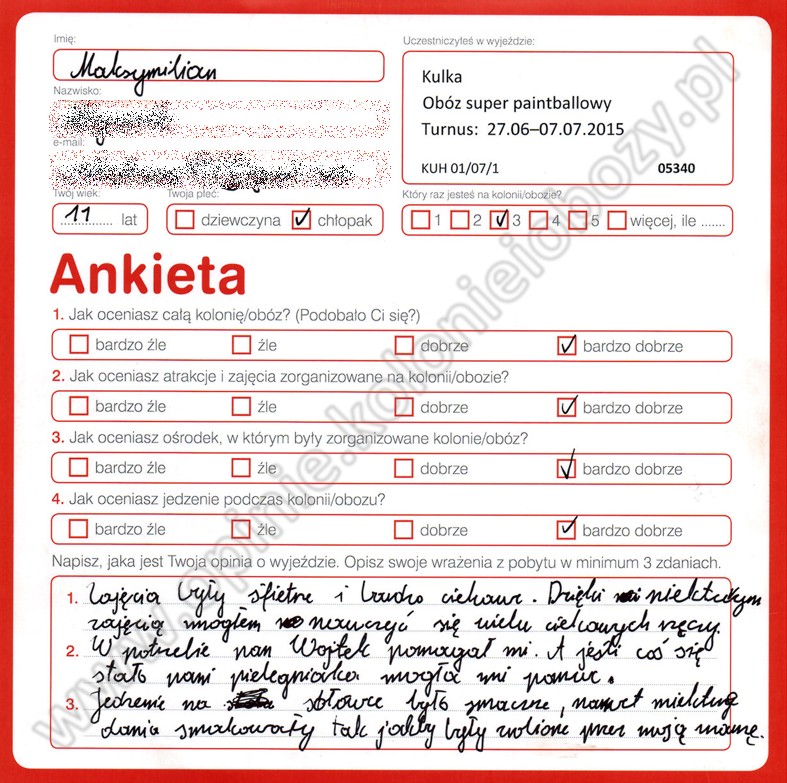 Imię:
Maksymilian
Uczestniczyłeś w wyjeździe:
Kulka
Obóz super paintballowy
Turnus: 27.06–07.07.2015
KUH 01/07/1 05340
Nazwisko:
e-mail:
Twój wiek:
11 lat
Twoja płeć:
dziewczyna chłopak
Który raz jesteś na kolonii/obozie?
1 2 3 4 5 więcej, ile .......
Ankieta
1. Jak oceniasz całą kolonię/obóz? (Podobało Ci się?)
bardzo źle źle dobrze bardzo dobrze
2. Jak oceniasz atrakcje i zajęcia zorganizowane na kolonii/obozie?
bardzo źle źle dobrze bardzo dobrze
3. Jak oceniasz ośrodek, w którym były zorganizowane kolonie/obóz?
bardzo źle źle dobrze bardzo dobrze
4. Jak oceniasz jedzenie podczas kolonii/obozu?
bardzo źle źle dobrze bardzo dobrze
Napisz, jaka jest Twoja opinia o wyjeździe. Opisz swoje wrażenia z pobytu w minimum 3 zdaniach.
1. Zajęcia były sfietne i bardzo ciekawe. Dzięki niektórym
zajęcią mogłem nauczyć się wielu ciekawych rzeczy.
2. W potrzebie pan Wojtek pomagał mi. A jeśli coś się
stało pani pielęgniarka mogła mi pomuc.
3. Jedzenie na stołówce było smaczne, nawet niektóre
dania smakowały tak jakby były zrobione przez moją mamę.
www.opinie.kolonieiobozy.pl